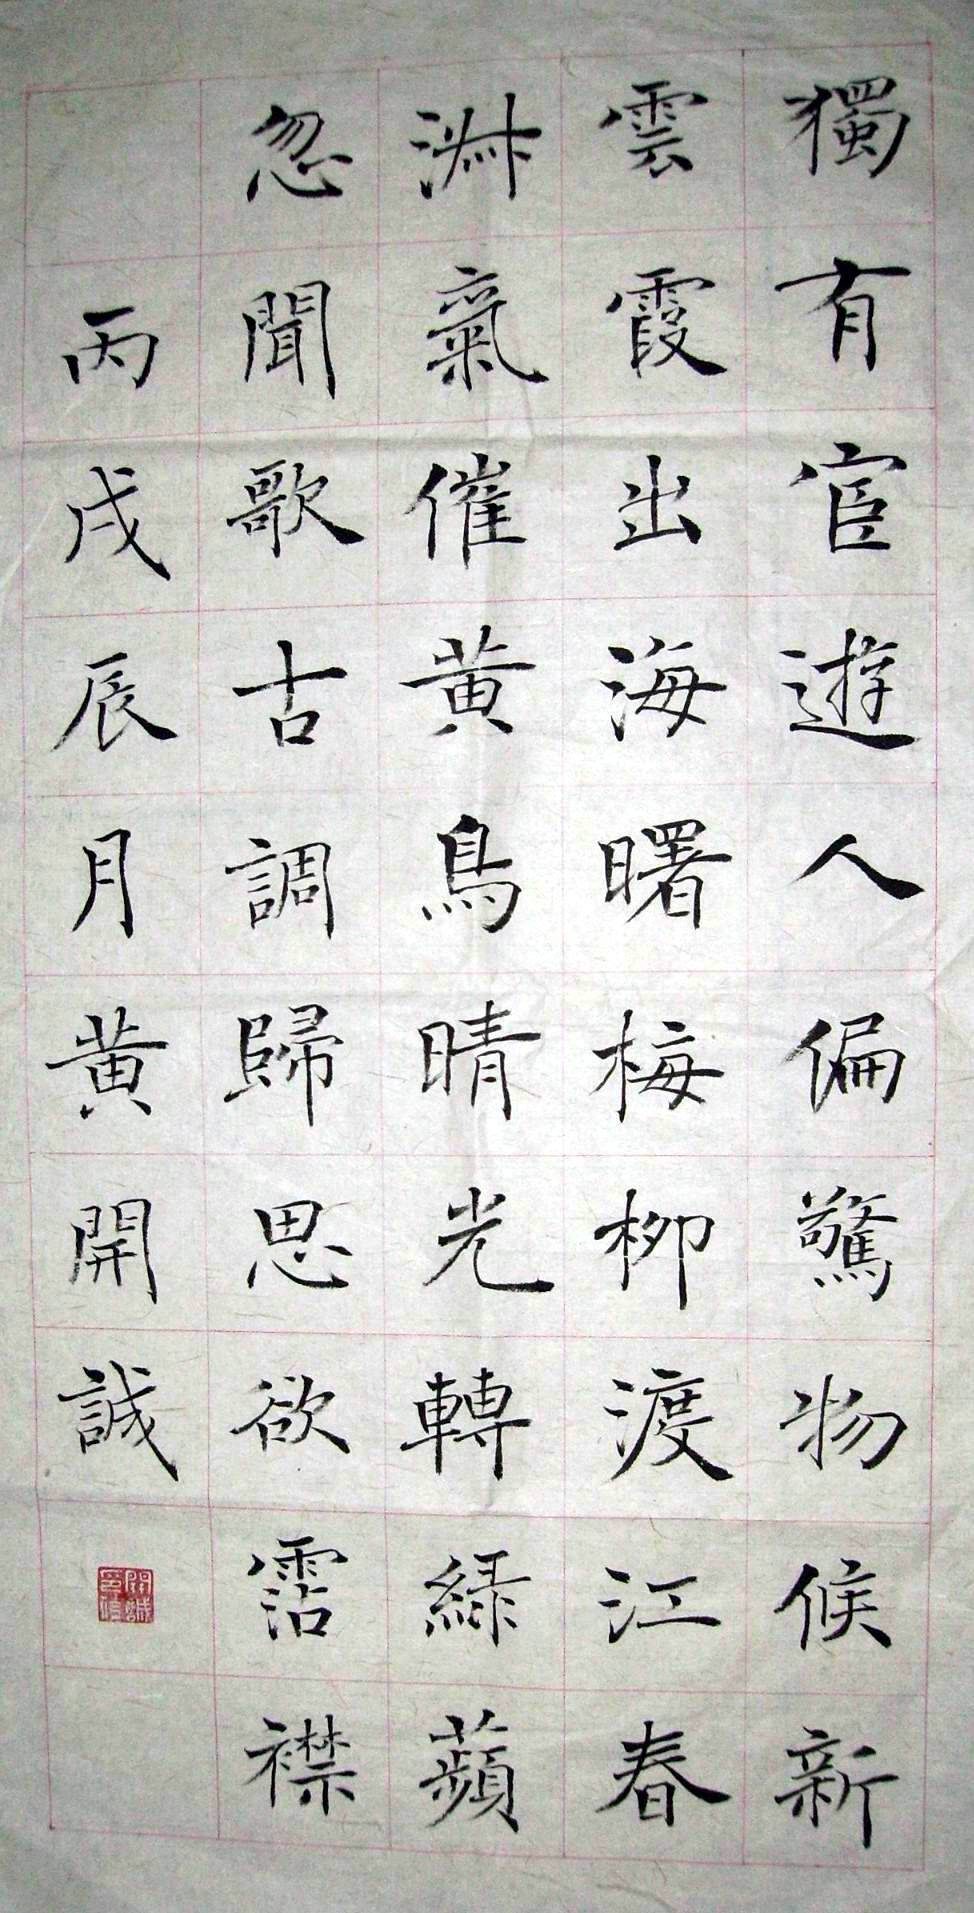 獨有宦遊人偏驚物候新
雲霞出海曙梅柳渡江春
淑氣催黃鳥晴光轉綠蘋
忽聞歌古調歸思欲霑襟
丙戌辰月黃開誠